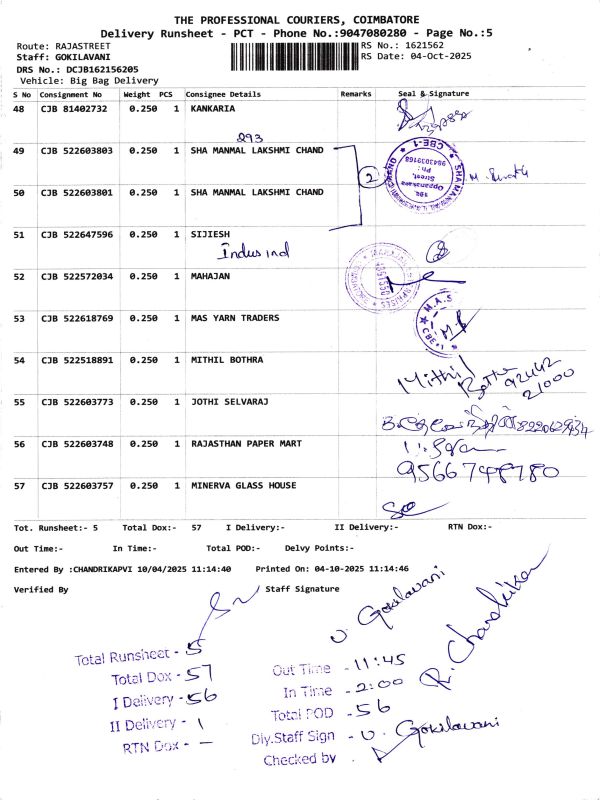 THE PROFESSIONAL COURIERS, COIMBATORE
Delivery Runsheet - PCT - Phone No.:9047080280 - Page No.:5
Route: RAJASTREET
RS No.: 1621562
Staff: GOKILAVANI
RS Date: 04-Oct-2025
DRS No.: DCJB162156205
Vehicle: Big Bag Delivery
S No Consignment No Weight PCS Consignee Details Remarks Seal & Signature
48 CJB 81402732 0.250 1 KANKARIA
293
49 CJB 522603803 0.250 1 SHA MANMAL LAKSHMI CHAND
2
50 CJB 522603801 0.250 1 SHA MANMAL LAKSHMI CHAND
51 CJB 522647596 0.250 1 SIJIESH
Indus ind
52 CJB 522572034 0.250 1 MAHAJAN
53 CJB 522618769 0.250 1 MAS YARN TRADERS
M.A.S
CBE-1
54 CJB 522518891 0.250 1 MITHIL BOTHRA
Mithil
92442
21000
55 CJB 522603773 0.250 1 JOTHI SELVARAJ
56 CJB 522603748 0.250 1 RAJASTHAN PAPER MART
9566748780
57 CJB 522603757 0.250 1 MINERVA GLASS HOUSE
Tot. Runsheet:- 5 Total Dox:- 57 I Delivery:- II Delivery:- RTN Dox:-
Out Time:- In Time:- Total POD:- Delvy Points:-
Entered By :CHANDRIKAPVI 10/04/2025 11:14:40 Printed On: 04-10-2025 11:14:46
Verified By Staff Signature
U. Gokilavani
R. Chandrika
Total Runsheet - 5
Total Dox - 57
I Delivery - 56
II Delivery - 1
RTN Dox - —
Out Time - 11:45
In Time - 2:00
Total POD - 56
Dly.Staff Sign - U. Gokilavani
Checked by